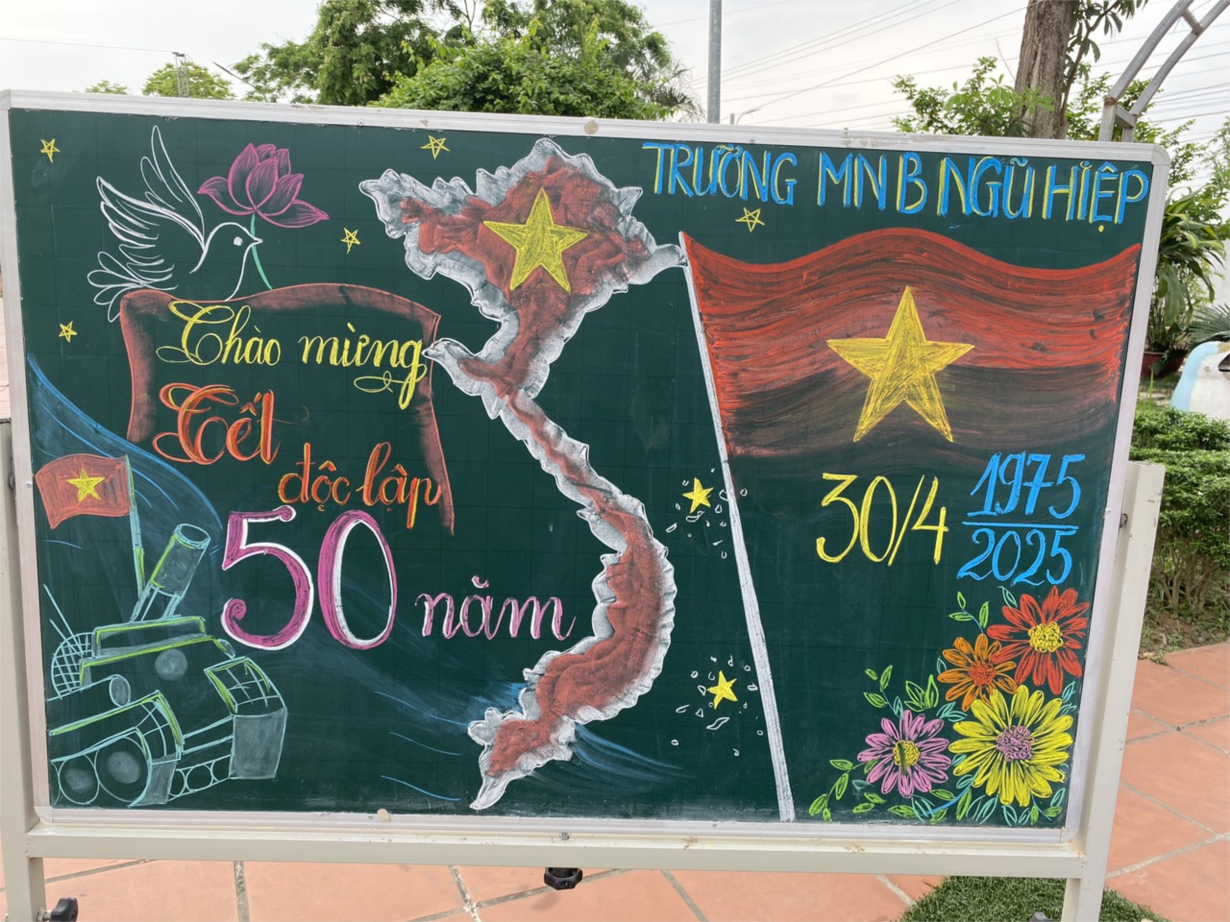 TRƯỜNG MN B NGŨ HIỆP
Chào mừng
Tết
độc lập
50 năm
30/4 1975
2025